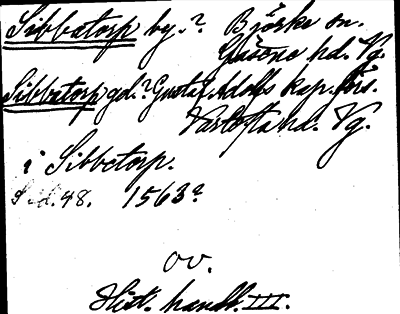 Sibbatorp by.? Bjőrke sn.
Gäsene hd. Vg.
Sibbatorp gd.? Gustaf Adolfs kap. förs.
Vartofta hd. Vg.
i Sibbetorp.
48. 1563?
OV.
Hist. handl. III.